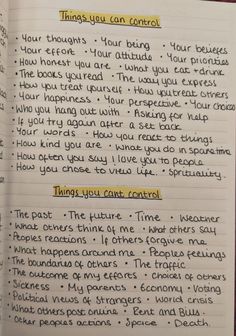 Things you can control
• Your thoughts • Your being • Your beliefes
• Your effort • Your attitude • Your priorities
• How honest you are • What you eat + drink
• The books you read • The way you express
• How you treat yourself • How you treat others
• Your happiness • Your perspective • Your choices
• Who you hang out with • Asking for help
• If you try again after a set back
• Your words • How you react to things
• How kind you are • What you do in sparetime
• How often you say I love you to people
• How you chose to view life. • Spirituality.
Things you cant control
• The past • The future • Time • Weather
• What others think of me • What others say
• Peoples reactions • If others forgive me
• What happens around me • Peoples feelings
• The boundaries of others • The traffic
• The outcome of my efforts • Choices of others
• Sickness • My parents • Economy • Voting
• Political views of strangers • World crisis
• What others post online • Rent and Bills
• Other peoples actions • Death